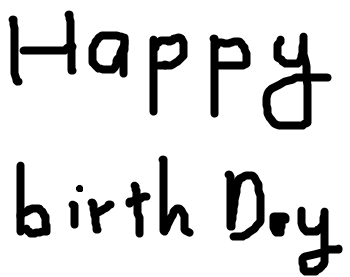 Happy
birth Day